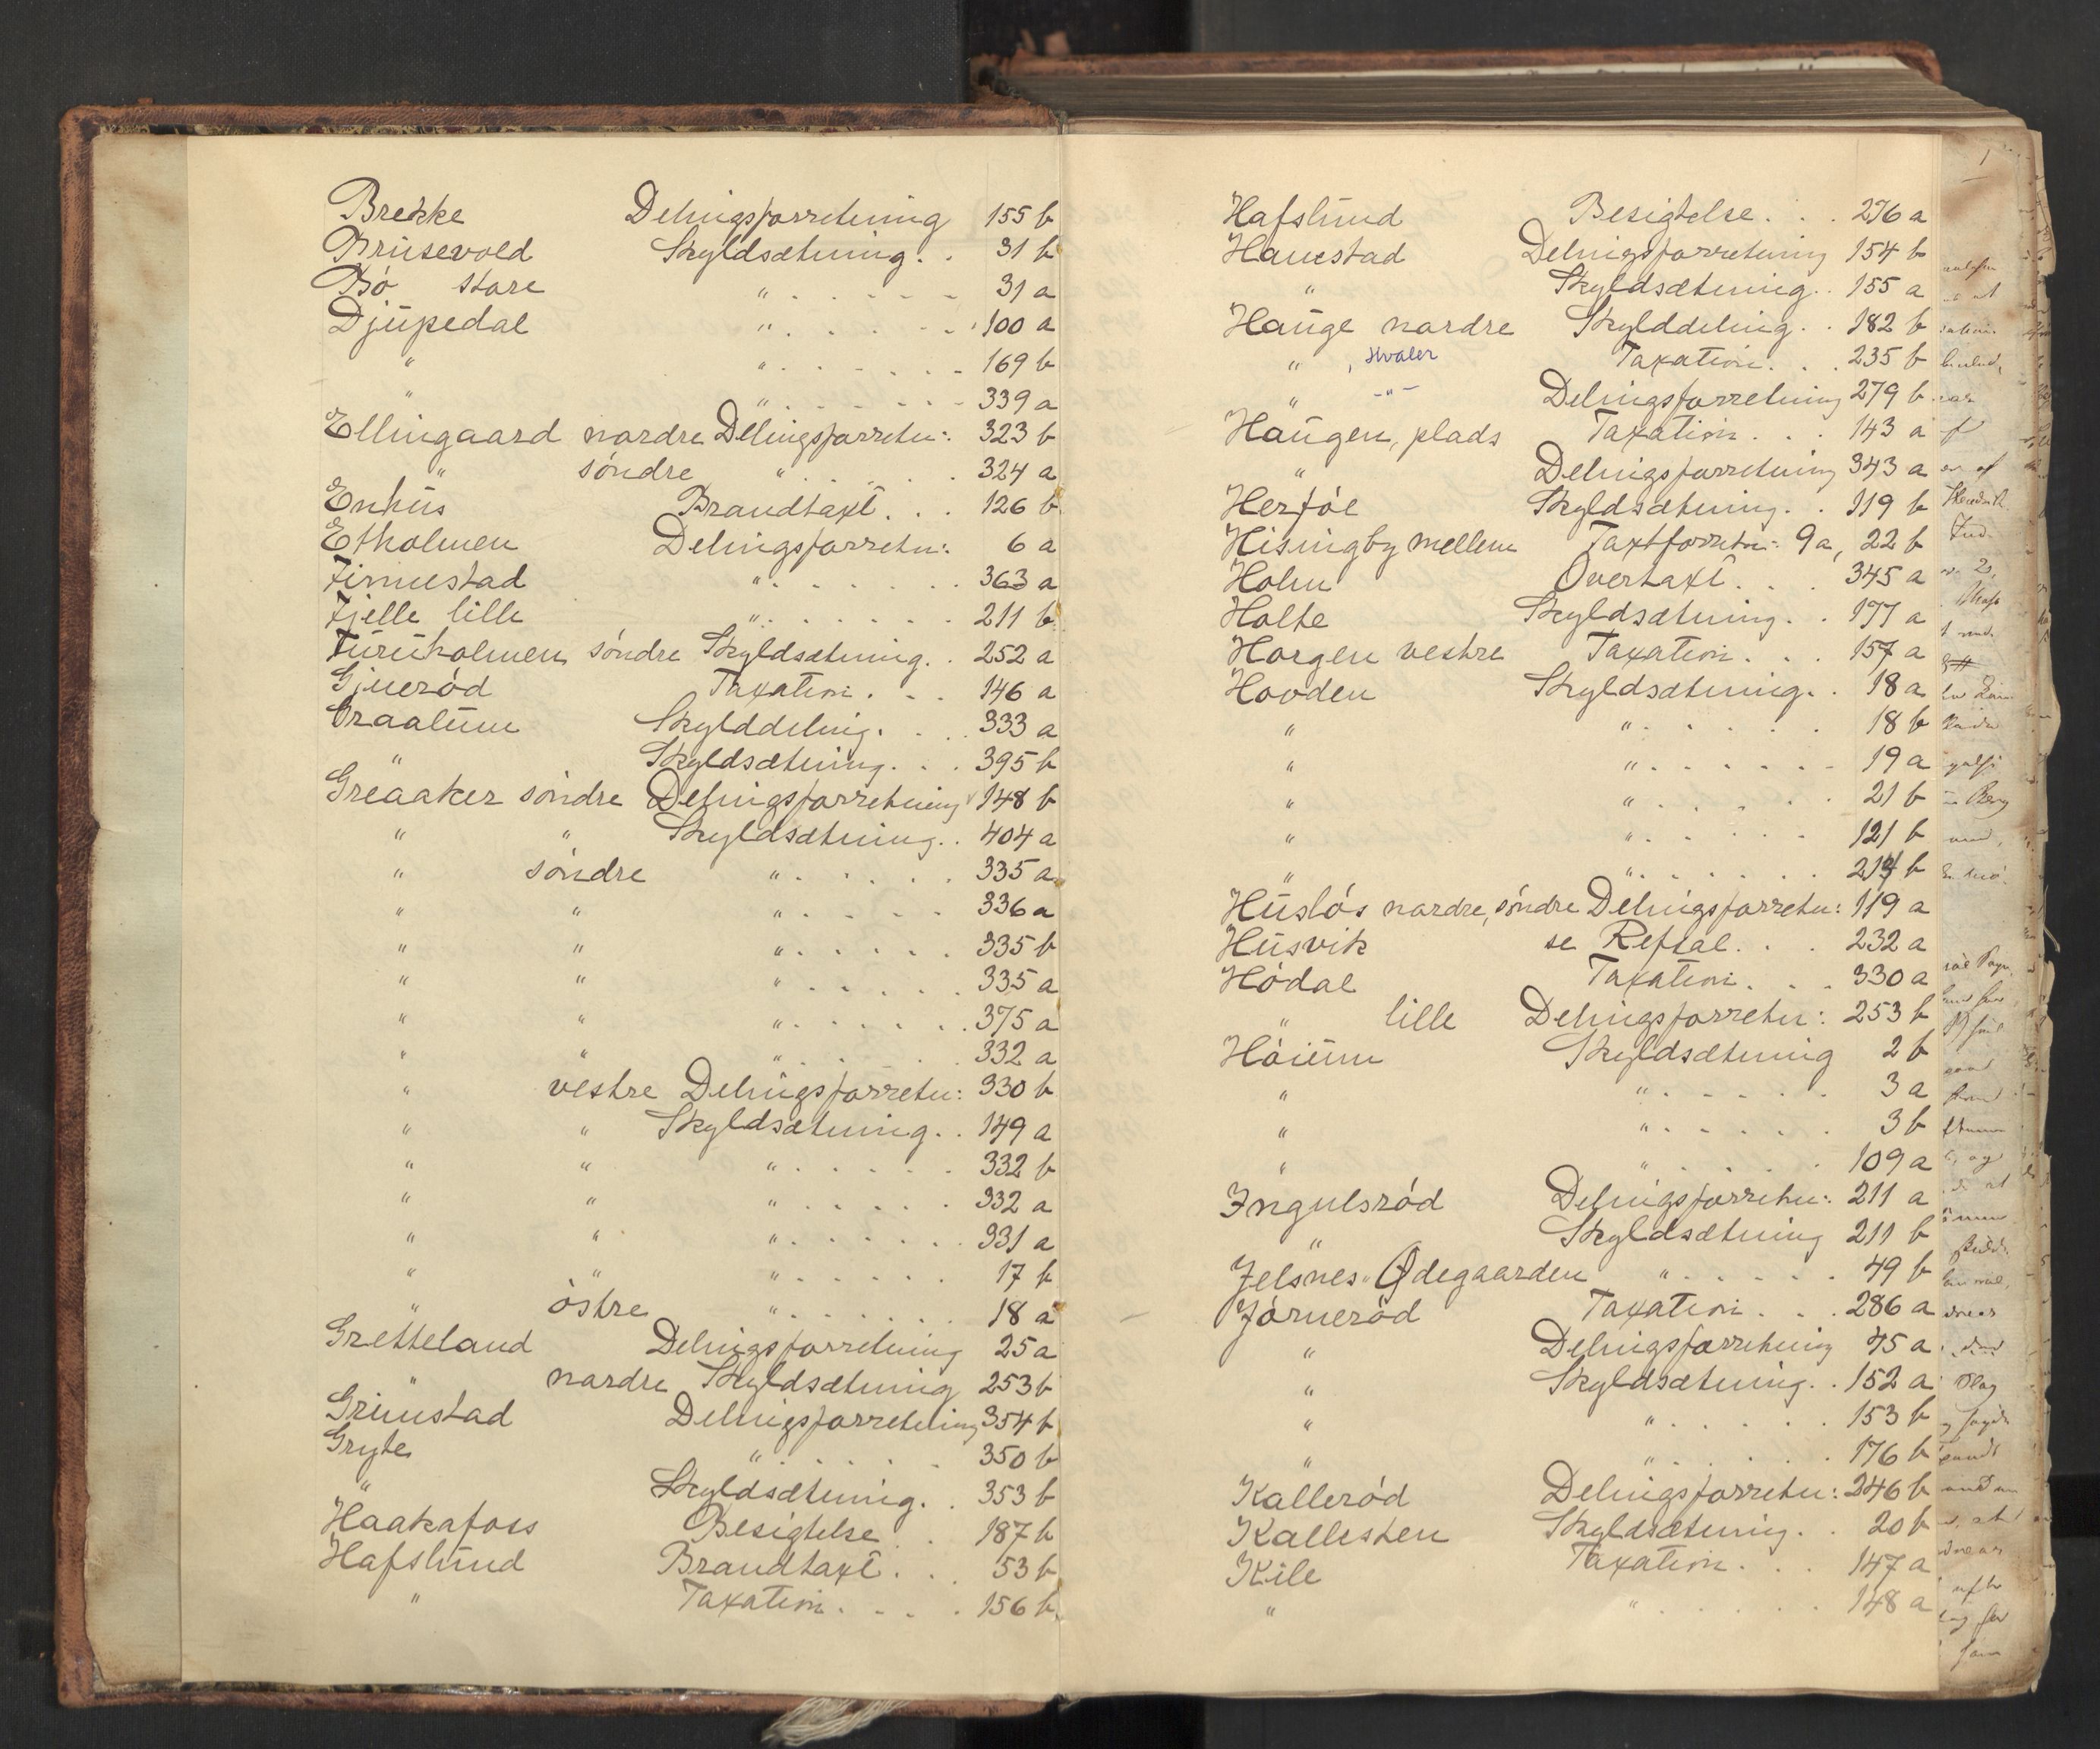 Brekke Delingsforretning 155 b
Brusevold Skyldsætning . . 31 b
Bö store " . . . . . . 31 a
Djupedal " . . . . . . 100 a
" " . . . . . . 169 b
" " . . . . . . 339 a
Ellingaard nordre Delingsforretn: 323 b
" söndre " . . . . . 324 a
Enhus Brandtaxt . . . 126 b
Etholmen Delingsforretn: 6 a
Finnestad " . . . . . . 363 a
Fjelle lille " . . . . . . 211 b
Furuholmen söndre Skyldsætning . . 252 a
Gjueröd Taxation . . . 146 a
Graalum Skylddeling . . . 333 a
" Skyldsætning . . . 395 b
Greaaker söndre Delingsforretning 148 b
" " Skyldsætning . . 404 a
" söndre " . . . . . 335 a
" " " . . . . . 336 a
" " " . . . . . 335 b
" " " . . . . . 335 a
" " " . . . . . . 375 a
" " " . . . . . 332 a
" vestre Delingsforretn: 330 b
" " Skyldsætning . . 149 a
" " " . . . . . 332 b
" " " . . . . . 332 a
" " " . . . . . . 331 a
" " " . . . . . 17 b
" östre " . . . . . . 18 a
Gretteland Delingsforretning 25 a
" nordre Skyldsætning 253 b
Grimstad Delingsforretning 354 b
Gryte " . . . . . 350 b
" Skyldsætning . . 353 b
Haakafoss Besigtelse . . 187 b
Hafslund Brandtaxt . . . 53 b
" Taxation . . . . 156 b
1
Hafslund Besigtelse . . . 276 a
Hauestad Delingsforretning 154 b
" Skyldsætning . . 155 a
Hauge nordre Skylddeling . . 182 b
" , Hvaler Taxation . . . 235 b
" -"- Delingsforretning 279 b
Haugen, plads Taxation . . . 143 a
" Delingsforretning 343 a
Herföl Skyldsætning . . 119 b
Hisingby mellem Taxtforretn: 9 a, 22 b
Holm Overtaxt . . . 345 a
Holte Skyldsætning . . 177 a
Horgen vestre Taxation . . . 157 a
Hovden Skyldsætning . . 18 a
" " . . . . . 18 b
" " . . . . . . 19 a
" " . . . . . 21 b
" " . . . . . 121 b
" " . . . . . . 214 b
Huslös nordre, söndre Delingsforretn: 119 a
Husvik se Reftal . . . 232 a
Hödal Taxation . . . 330 a
" lille Delingsforretn: 253 b
Höium Skyldsætning 2 b
" " . . . . . 3 a
" " . . . . . 3 b
" " . . . . . 109 a
Ingulsröd Delingsforretn: 211 a
" Skyldsætning 211 b
Jelsnes-Ødegaarden " . . . . . 49 b
Jörneröd Taxation . . . 286 a
" Delingsforretning 45 a
" Skyldsætning . . 152 a
" " . . . . . 153 b
" " . . . . . 176 b
Kalleröd Delingsforretn: 246 b
Kallesten Skyldsætning . . 20 b
Kile Taxation . . . 147 a
" " . . . . . 148 a